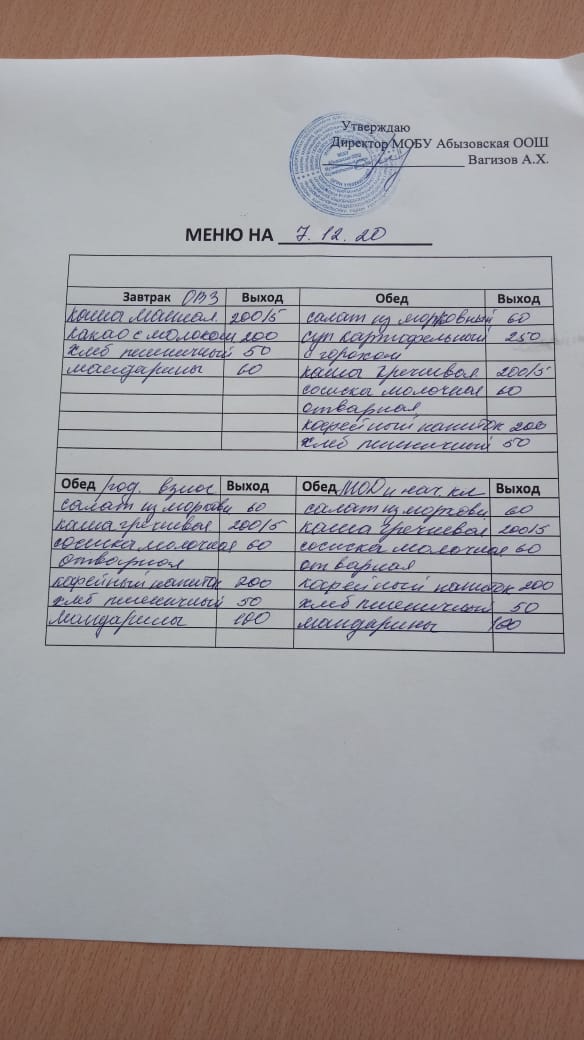 Утверждаю
Директор МОБУ Абызовская ООШ
Вагизов А.Х.
МЕНЮ НА 7.12.20
Завтрак ОВЗ Выход Обед Выход
каша манная 200/5 салат из морковный 60
какао с молоком 200 суп картофельный 250
хлеб пшеничный 50 с горохом
мандарины 60 каша гречневая 200/5
сосиска молочная 60
отварная
кофейный напиток 200
хлеб пшеничный 50
Обед род. взнос Выход Обед МОД и нач. кл Выход
салат из моркови 60 салат из моркови 60
каша гречневая 200/5 каша гречневая 200/5
сосиска молочная 60 сосиска молочная 60
отварная отварная
кофейный напиток 200 кофейный напиток 200
хлеб пшеничный 50 хлеб пшеничный 50
мандарины 100 мандарины 100